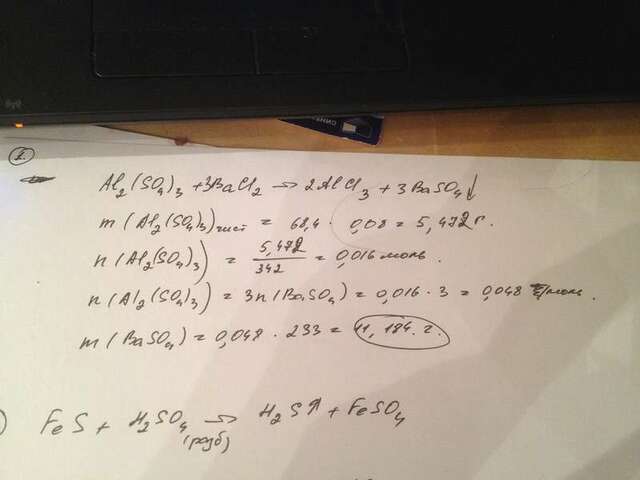 1.
Al₂(SO₄)₃ + 3BaCl₂ → 2AlCl₃ + 3BaSO₄↓
m(Al₂(SO₄)₃)чист = 68,4 · 0,08 = 5,472 г.
n(Al₂(SO₄)₃) = 5,472/342 = 0,016 моль.
n(Al₂(SO₄)₃) = 3n(BaSO₄) = 0,016 · 3 = 0,048 моль.
m(BaSO₄) = 0,048 · 233 = 11,184 г.
FeS + H₂SO₄ (разб) → H₂S↑ + FeSO₄